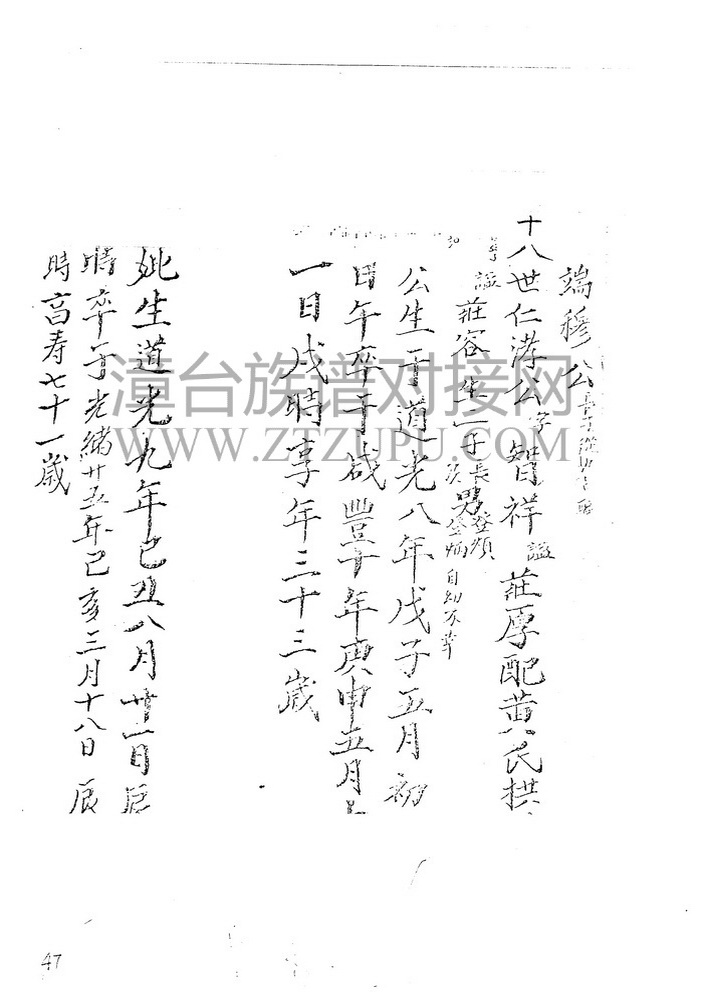 端穆公
十八世仁溝公字智祥諡莊厚配黃氏拱
諡莊容生二子長登順
次男金炳自幼不幸
公生于道光八年戊子五月初
日午卒于咸豐十年庚申五月
一日戌時享年三十三歲
妣生道光九年己丑八月廿一日辰
時卒于光緒廿五年己亥三月十八日辰
時享寿七十一歲
漳台族谱对接网
WWW.ZTZUPU.COM
47